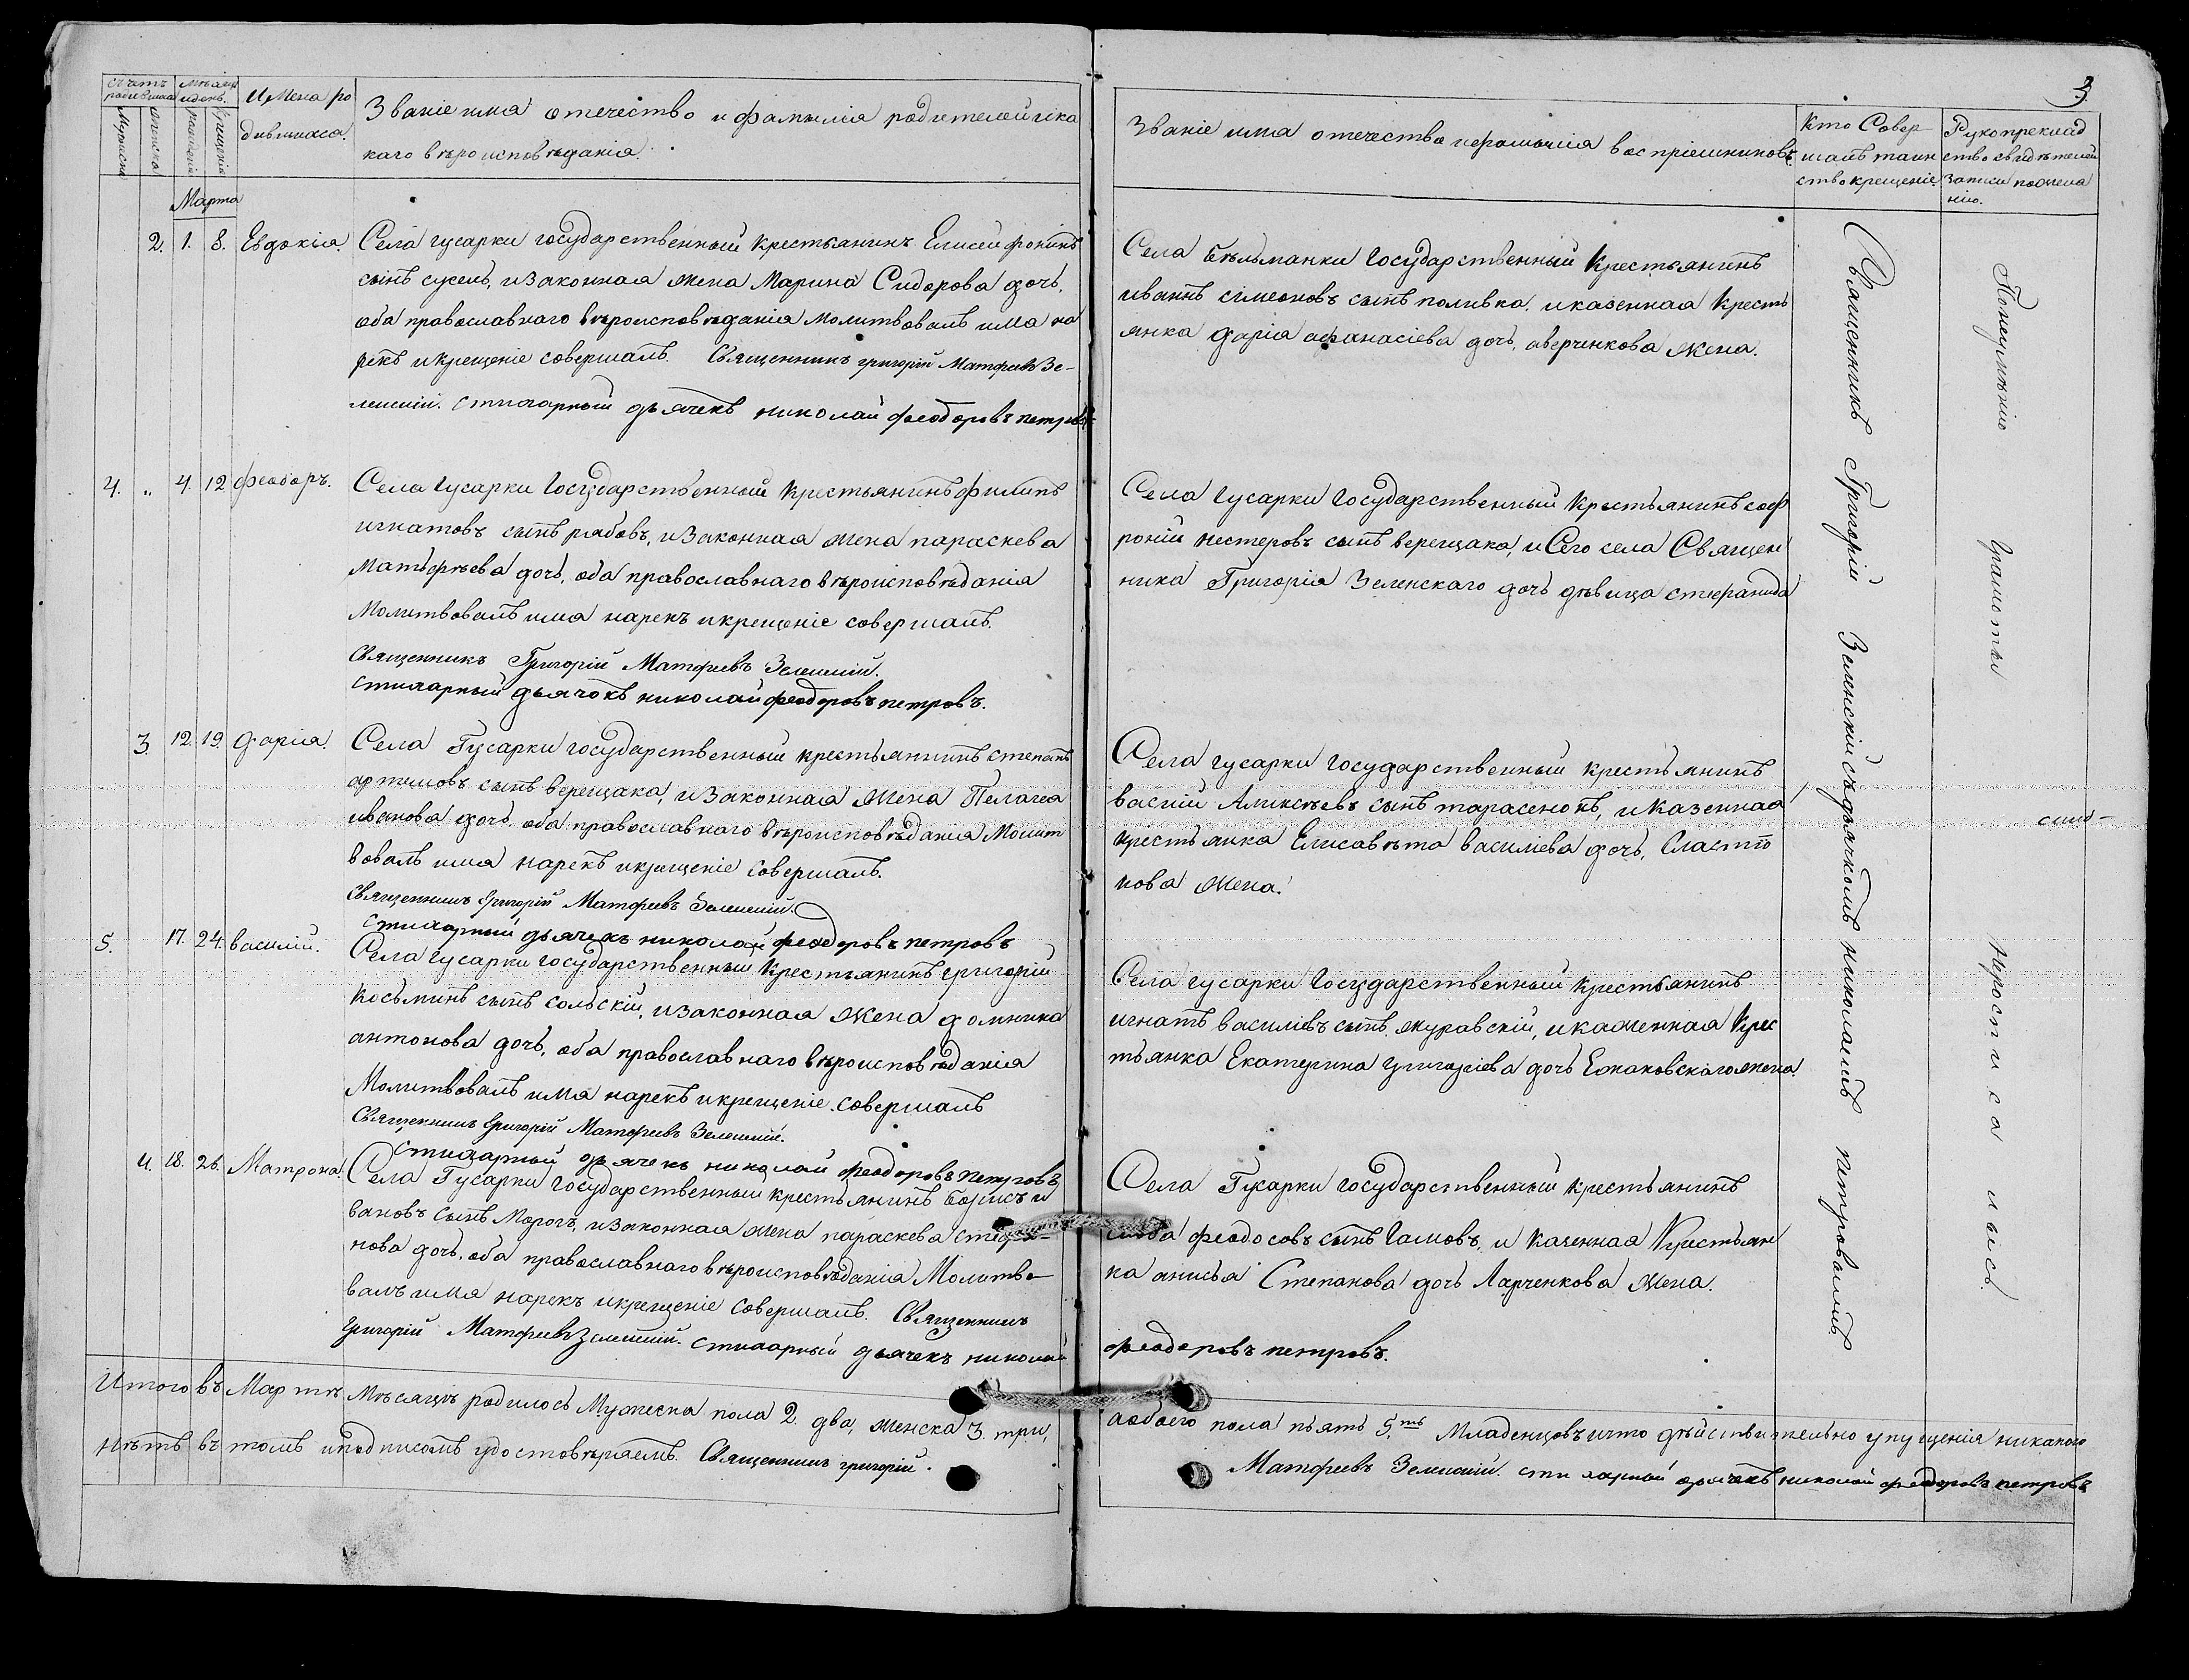 3
Счетъ родившихся
Мѣсяцъ и день.
Имена ро
дившихся.
Званіе имя отечество и фамилія родителей и ка
каго вѣроисповѣданія.
Званіе имя отечество и фамилія воспріемниковъ
Кто Совер
шалъ таин
ство крещенія
Рукоприклад
ство свидѣтелей
записи по жела
нію.
Мужеска
Женска
рожденія
крещенія
Марта
2. 1. 8. Евдокія.
Села гусарки государственный крестьянинъ Елисей фокинъ
сынъ сусль, и законная жена Марина Сидорова дочь,
оба православнаго вѣроисповѣданія Молитвовалъ имя на
рекъ и крещеніе совершалъ. Священникъ григорій Матфеевъ Зе-
ленскій. стихарный дьячекъ николай феодоровъ петровъ
Села бѣльманки Государственный Крестьянинъ
иванъ симеоновъ сынъ поливка, и казенная Кресть
янка дарія афанасіева дочь, аверченкова жена.
4. „ 4. 12 феодоръ.
Села гусарки Государственный Крестьянинъ филипъ
игнатовъ сынъ рябовъ, и законная жена параскева
матьфѣева дочь, оба православнаго вѣроисповѣданія
Молитвовалъ имя нарекъ и крещеніе совершалъ.
Священникъ Григорій Матфеевъ Зеленскій.
стихарный дьячокъ николай феодоровъ петровъ.
Села гусарки Государственный Крестьянинъ соф
роній нестеровъ сынъ верещака, и Сего села Священ
ника Григорія Зеленскаго дочь дѣвица стефанида
3. 12. 19. дарія.
Села Гусарки государственный крестьянинъ степанъ
артемовъ сынъ верещака, и законная жена Пелагея
иванова дочь, оба православнаго вѣроисповѣданія Молит
вовалъ имя нарекъ и крещеніе совершалъ.
Священникъ Григорій Матфеевъ Зеленскій.
стихарный дьячекъ николай феодоровъ петровъ
Села гусарки государственный крестьянинъ
василій Алексѣевъ сынъ тарасенокъ, и казенная
крестьянка Елисавѣта василіева дочь,
нова жена.
5. 17. 24. василій.
Села гусарки государственный Крестьянинъ григорій
косьминъ сынъ сольскій, и законная жена домника
антонова дочь, оба православнаго вѣроисповѣданія
Молитвовалъ имя нарекъ и крещеніе совершалъ
Священникъ Григорій Матфеевъ Зеленскій.
стихарный дьячекъ николай феодоровъ петровъ
Села гусарки Государственный крестьянинъ
игнатъ василіевъ сынъ журавскій, и казенная Крес
тьянка Екатерина григоріева дочь Ермаковскаго жена.
4. 18. 26. Матрона.
Села Гусарки государственный крестьянинъ борисъ и
вановъ сынъ Морогъ, и законная жена параскева стефа-
нова дочь, оба православнаго вѣроисповѣданія Молитво
валъ имя нарекъ и крещеніе совершалъ. Священникъ
Григорій Матфеевъ Зеленскій. стихарный дьячекъ николай
Села Гусарки государственный крестьянинъ
феодосовъ сынъ Гамовъ, и казенная Крестьян
ка анисья Степанова дочь Ларченкова жена.
феодоровъ петровъ.
Священникъ Григорій Зеленскій съ дьячкомъ николаемъ петровымъ
По неумѣнію грамоты не росписались.
Итого въ Мартѣ Мѣсяцѣ родилось Мужеска пола 2. два, женска 3. три,
а обоего пола пьять 5.ть Младенцовъ и что дѣйствительно упущенія никакого
нѣтъ въ томъ и подписомъ удостовѣряемъ. Священникъ григорій
Матфеевъ Зеленскій. стихарный дьячекъ николай феодоровъ петровъ